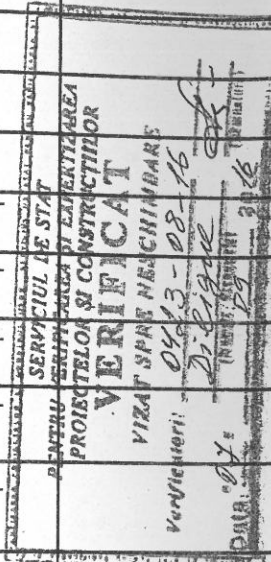 SERVICIUL DE STAT
PENTRU VERIFICAREA ȘI EXPERTIZAREA
PROIECTELOR ȘI CONSTRUCȚIILOR
VERIFICAT
VIZAT SPRE NESCHIMBARE
Verificatori: 0423-08-16
Data: "07" 09 2016